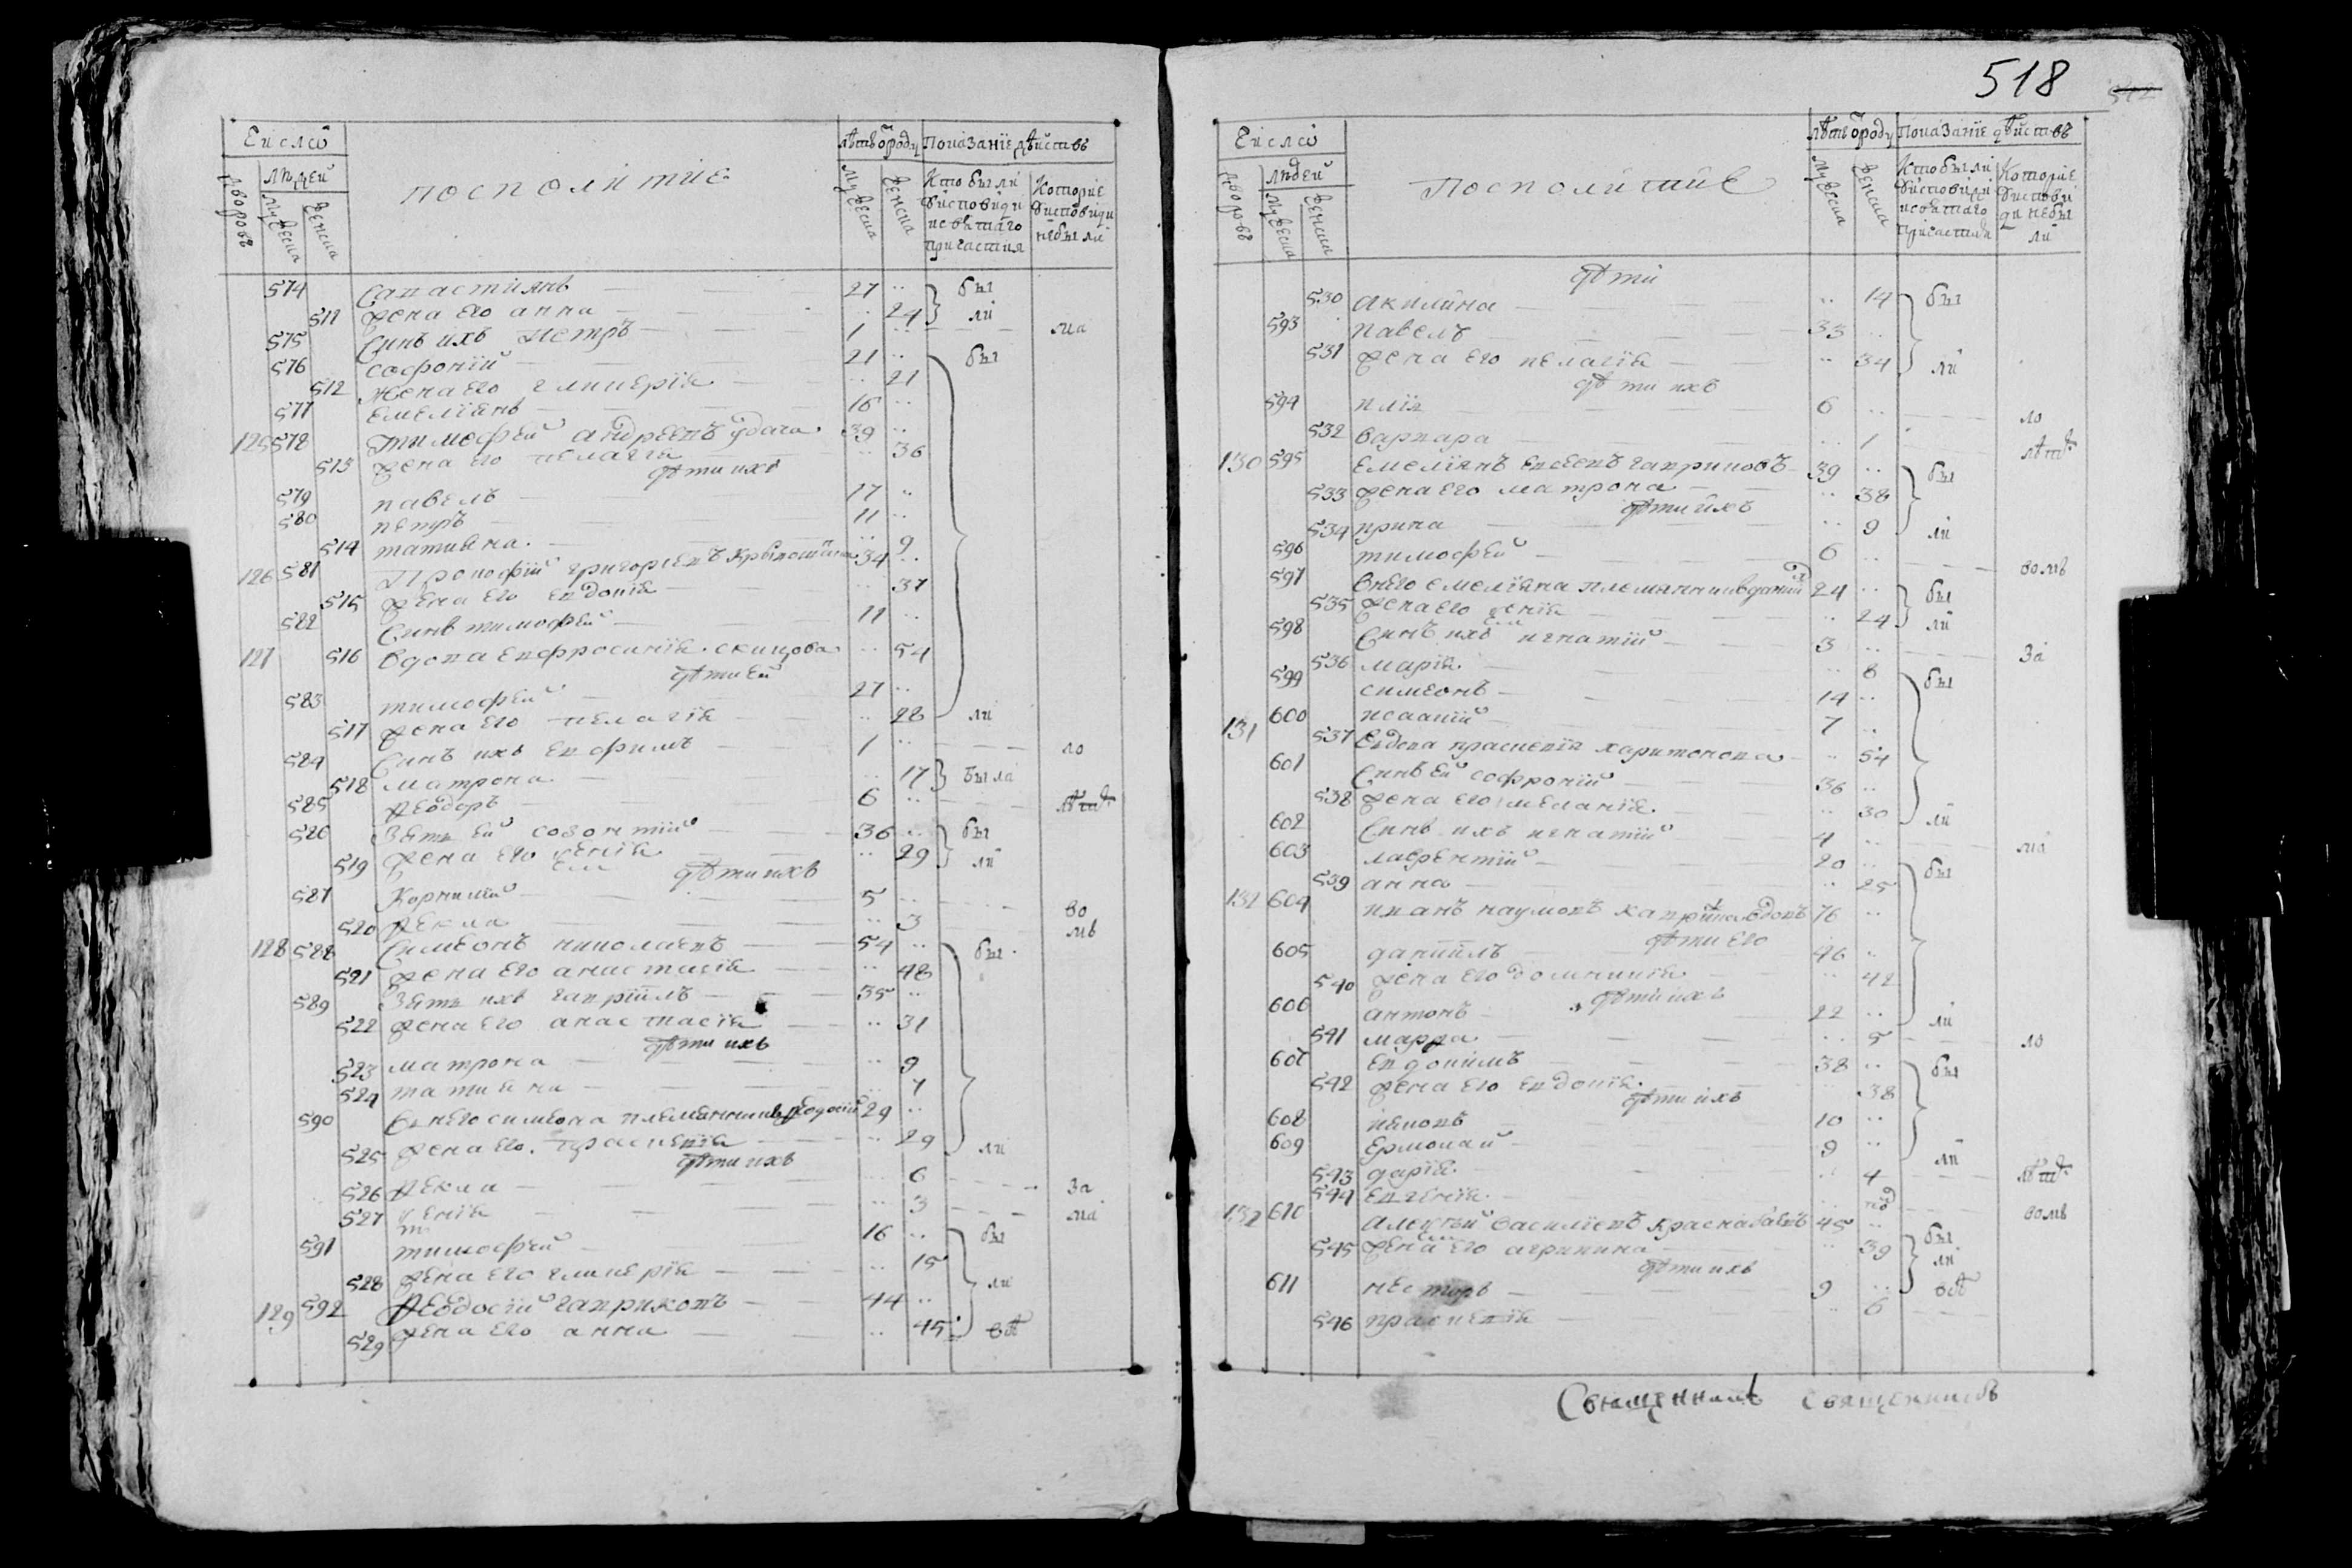 518
Число
людей
дворовъ
мужеска
женска
посполитие
лѣтъ ѿ роду
мужеска
женска
Показаніе дѣйствъ
Кто были
исповиди
и святаго
причастия
Которіе
исповиди
небыли
574 Савастиянъ — 27 .. бы
511 жена его анна — .. 24 ли
575 Синъ ихъ Петръ — 1 .. ма
576 софоній — 21 .. бы
512 жена его гликерія — .. 21
577 емеліянъ — 16 ..
125 578 тимофей андреевъ удача 39 ..
513 жена его пелагія .. 36
дѣти ихъ
579 павелъ — 17 ..
580 петръ — 11 ..
514 татияна — .. 9
126 581 Прокофій григориевъ 34 ..
515 жена его евдокія — .. 37
582 Синъ тимофей — 11 ..
127 516 вдова евфросинія .. 54
дѣти ей
583 тимофей — 27 ..
517 жена его пелагія — .. 28 ли
584 Синъ ихъ евфимъ — 1 .. ло
518 матрона — .. 17 была
585 Ѳеодоръ — 6 .. лѣтст
586 Зять ей созонтій — 36 .. бы
519 жена его ксенія — .. 29 ли
дѣти ихъ
587 Корнилій — 5 .. во
520 Ѳекла — .. 3 лѣ
128 588 Симеонъ николаевъ — 54 .. бы
521 жена его анастасія — .. 48
589 Зять ихъ гавріилъ — 35 ..
522 жена его анастасія — .. 31
дѣти ихъ
523 матрона — .. 9
524 татияна — .. 7
590 Внего симеона племянникъ Ѳеодосій 29 ..
525 жена его праскевія — .. 29 ли
дѣти ихъ
526 Ѳекла — .. 6 за
527 ксенія — .. 3 ма
591 тимофей — 16 .. бы
528 жена его гликерія — .. 15 ли
129 592 Ѳеодосій гавриковъ — 44 ..
529 жена его анна — .. 45 вѣ
Число
людей
дворовъ
мужеска
женска
Посполитие
лѣтъ ѿ роду
мужеска
женска
Показаніе дѣйствъ
Кто были
исповиди
и святаго
причастия
Которіе
исповиди небы
ли
дѣти
530 акилина — .. 14 бы
593 павелъ — 33 ..
531 жена его пелагія — .. 34 ли
дѣти ихъ
594 илія — 6 .. ло
532 варвара — .. 1 лѣтст
130 595 Емеліянъ евсеевъ гавриковъ 39 .. бы
533 жена его матрона — .. 38
дѣти ихъ
534 ирина — .. 9 ли
596 тимофей — 6 .. волѣ
597 Внего емеліяна племянникъ 24 .. бы
535 жена его ксенія — .. 24 ли
598 Синъ ихъ игнатій — 3 .. за
536 марія — .. 8 бы
599 симеонъ — 14 ..
600 исаакій — 7 ..
131 537 Вдова праскевія харитонова .. 54
601 Синъ ей софроній — 36 ..
538 жена его меланія — .. 30 ли
602 Синъ ихъ игнатій — 4 .. ма
603 лаврентій — 20 .. бы
539 анна — .. 25
132 604 иванъ наумовъ 76 ..
дѣти его
605 даніилъ — 46 ..
540 жена его домникія — .. 42
дѣти ихъ
606 антонъ — 22 .. ли
541 марфа — .. 5 ло
607 евдокимъ — 38 .. бы
542 жена его евдокія — .. 38
дѣти ихъ
608 іяковъ — 10 ..
609 ермолай — 9 .. ли
543 дарія — .. 4 лѣтст
544 евгенія — .. волѣ
132 610 алексѣй василіевъ 45 .. бы
545 жена его агрипина — .. 39 ли
дѣти ихъ
611 несторъ — 9 .. вѣ
546 праскевія — .. 6
Священникъ Священникъ